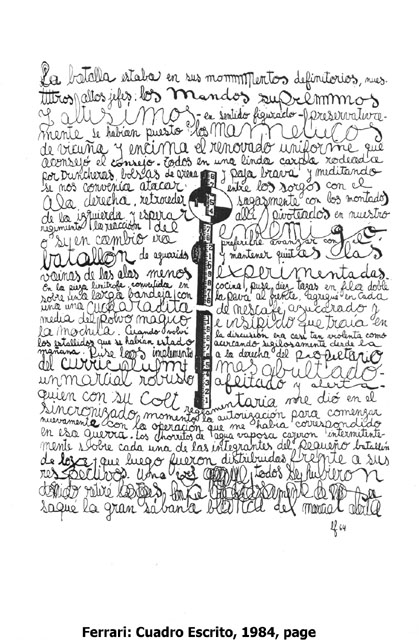 La batalla estaba en sus mommmmentos definitorios, nues-
tttros altos jefes, los mandos supremmmos
y altísimos en sentido figurado -preservativa-
mente se habían puesto los mamelucos
de vicuña y encima el renovado uniforme que
aconsejó el consejo- todos en una linda carpa rodeada
por trincheras, bolsas de arena y paja brava y meditando
si nos convenía atacar entre los sorgos con el
ala derecha, retroceder sagazmente con los montados
de la izquierda y esperar allí pivoteados en nuestro
regimiento la reacción del enemigo
o si en cambio era preferible avanzar con ese
batallón de aguarids y mantener quietas a las
vainas de las alas menos experimentadas.
En la pieza limítrofe convertida en cocina, puse diez tazas en fila doble
sobre una larga bandeja, con la pava al frente, agregué en cada
una una cucharadita de nescafé azucarado y
media del polvo mágico e insípido que traía en
la mochila. Cuando volví la discusión era casi tan violenta como
los estallidos que se habían estado acercando sigilosamente desde la
mañana. Puse los implementos a la derecha del propietario
del curriculummi mas abultado,
un marcial robusto afeitado y alert a-
quien con su colt reglamentaria me dio en el
sincronizado momento la autorización para comenzar
nuevamente con la operación que me había correspondido
en esa guerra. Los chorritos de agua vaposa cayeron intermitente-
mente sobre cada una de las integrantes del pequeño batallón
de loza que luego fueron distribuidas frente a sus
respectivos y una vez todos se hubieron
dormido retiré las tazas, limpié
saqué la gran sábana blanca del marcial alerta
lf 64
Ferrari: Cuadro Escrito, 1984, page